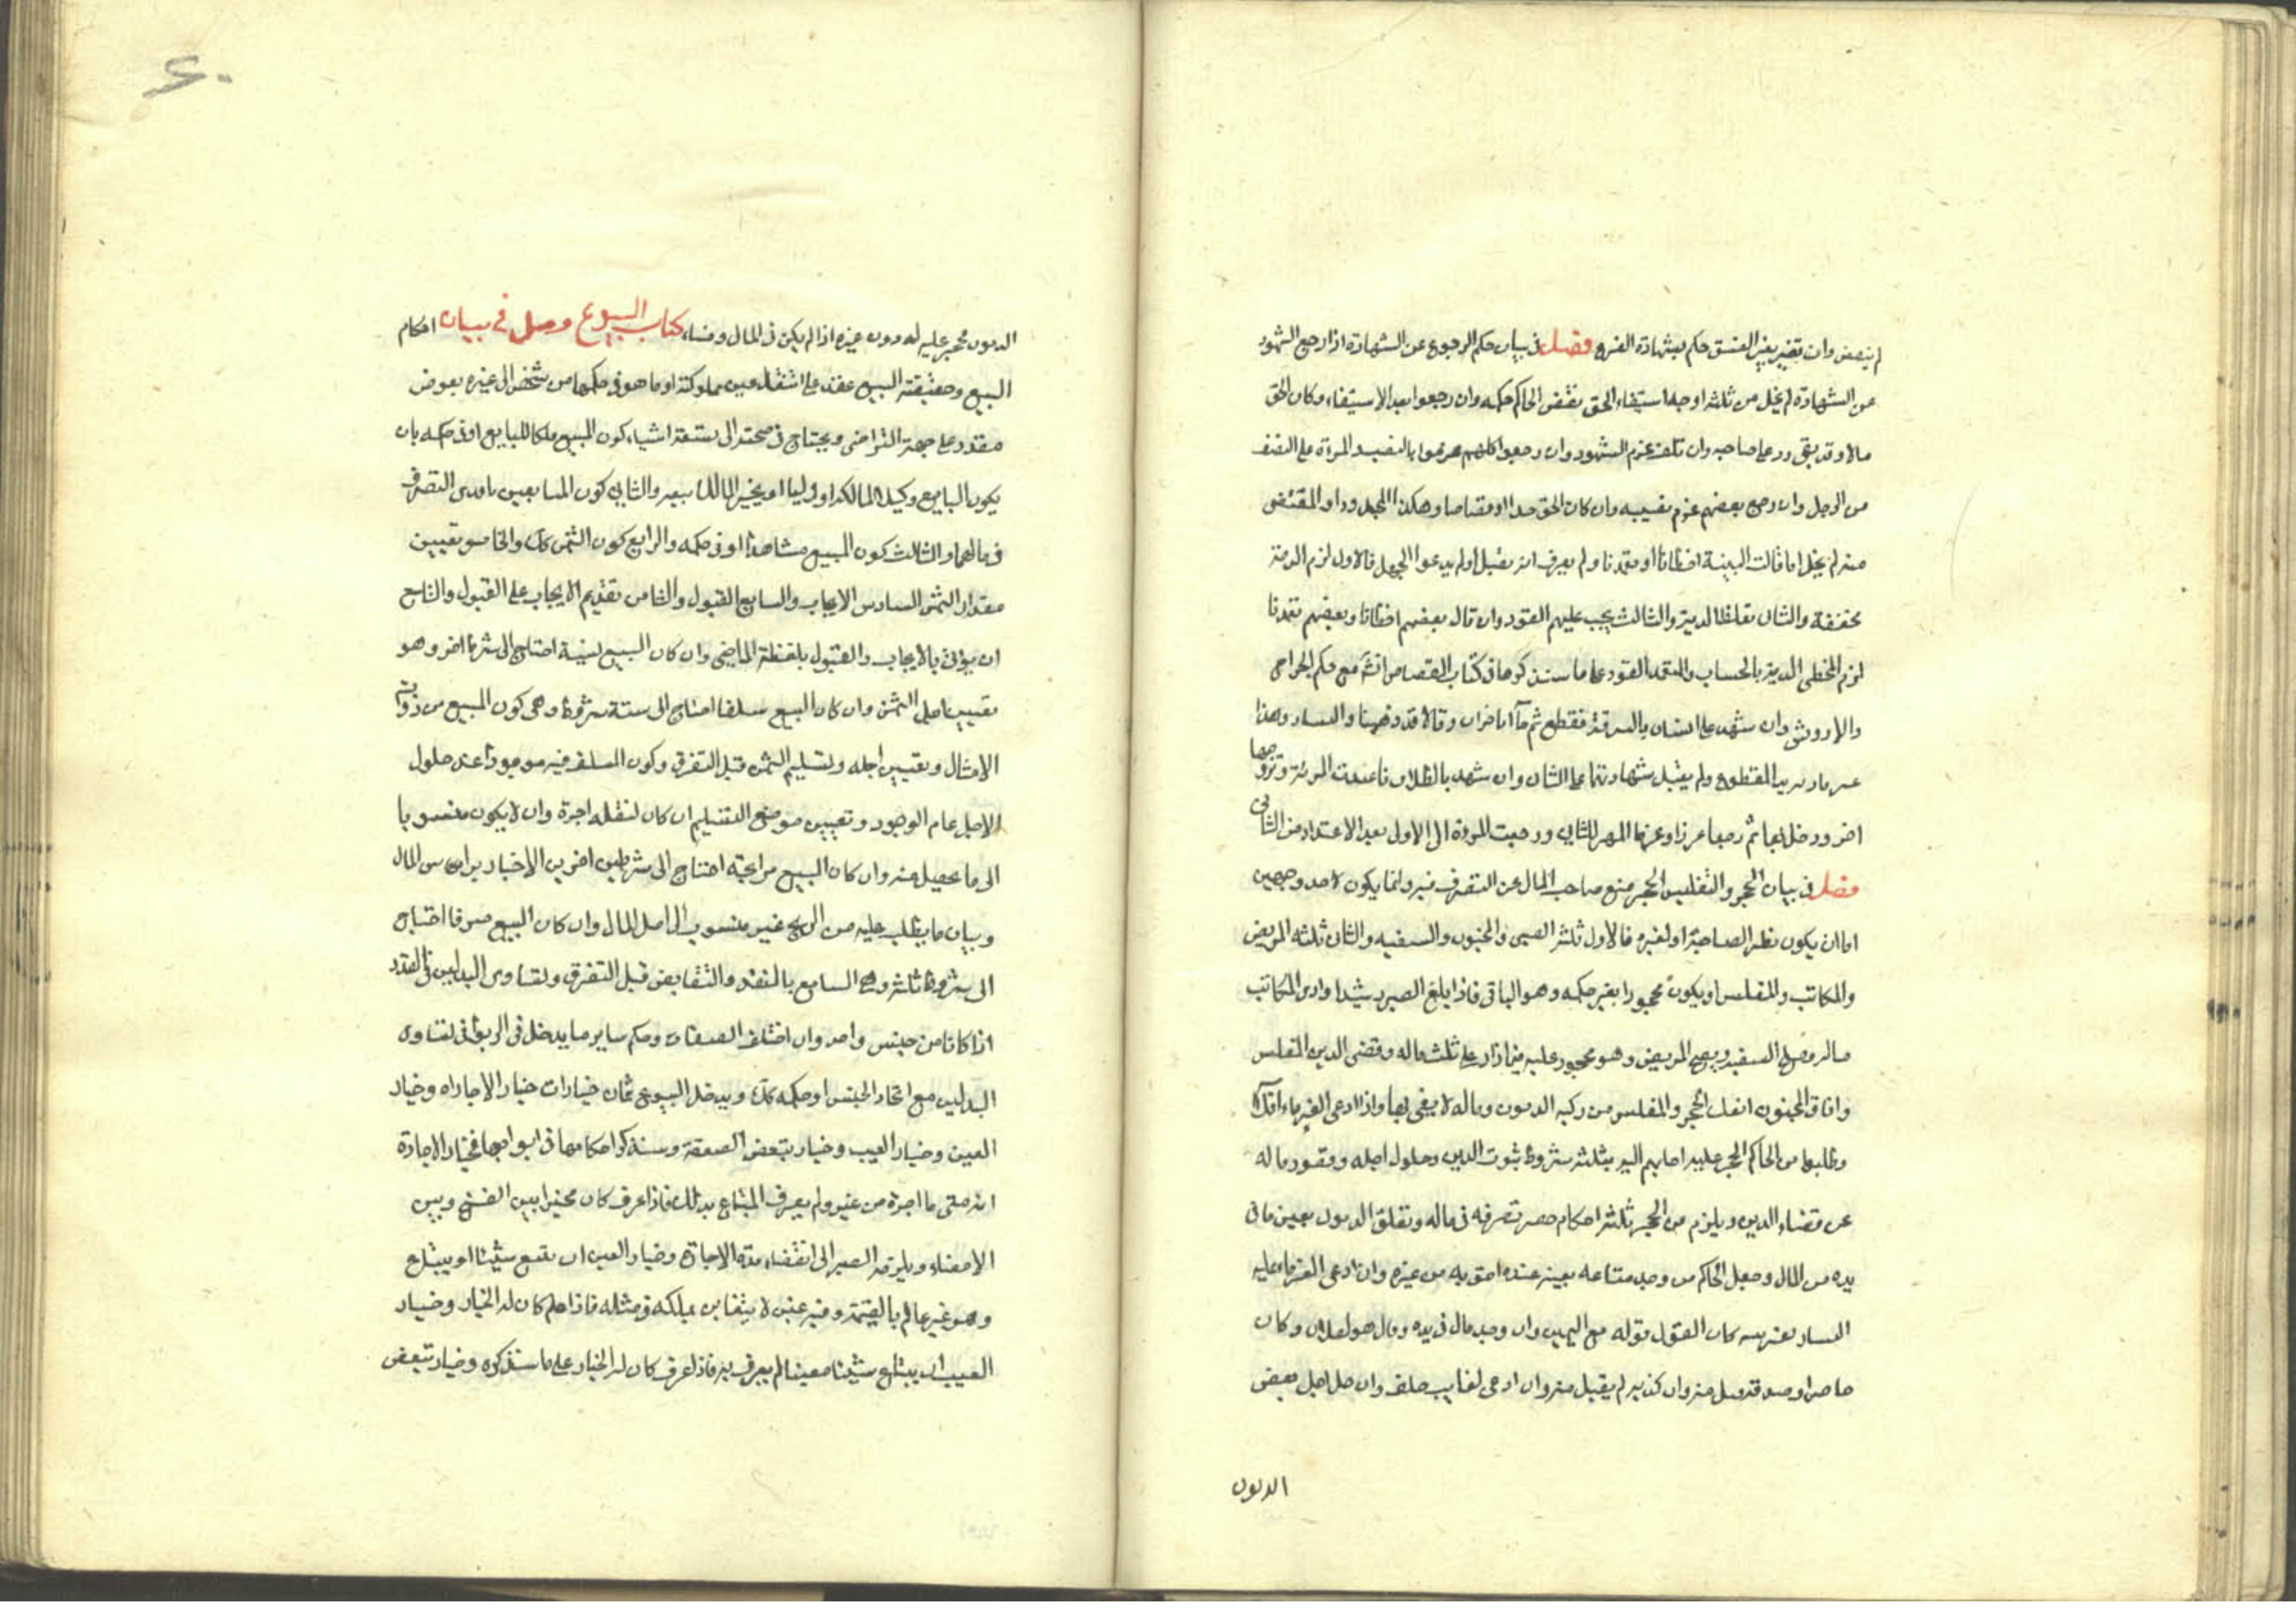 لم ينقض وان تغير بغير الفسق حكم بشهادة الفرع فصل في بيان حكم الرجوع عن الشهادة اذا رجع الشهود
عن الشهادة لم يخل من ثلثة اوجه استيفاء الحق نقض الحاكم حكمه وان رجعوا بعد الاستيفاء وكان الحق
مالا وقد بقي رد على صاحبه وان تلف غرم الشهود وان رجعوا كلهم غرموا بالنصيب المرءة على النصف
من الرجل وان رجع بعضهم غرم نصيبه وان كان الحق حدا او قصاصا وهلك المحدود او المقتص
منه لم يخل اما قالت البينة اخطانا او تعمدنا ولم يعرف انه يقتل اولم يدعوا الجهل فالاول لزم الدية
مخففة والثاني تغلظ الدية والثالث يجب عليهم القود وان قال بعضهم اخطانا وبعضهم تعمدنا
لزم المخطي الدية بالحساب والمتعمد القود على ما سنذكرها في كتاب القصاص انشه مع حكم الجراح
والاروش وان شهد على انسان بالسرقة فقطع ثم جآا باخر وقالا قد وهمنا والسارق هذا
غرما دية يد المقطوع ولم يقبل شهادتهما على الثاني وان شهد بالطلاق فاعتدت المرءة وتزوجها
اخر ودخل بها ثم رجعا عزرا وغرما المهر للثاني ورجعت المرءة الى الاول بعد الاعتداد من الثاني
فصل في بيان الحجر والتفليس الحجر منع صاحب المال عن التصرف فيه وانما يكون لاحد وجهين
اما ان يكون نظرا لصاحبه او لغيره فالاول ثلثة الصبي والمجنون والسفيه والثاني ثلثه المريض
والمكاتب والمفلس او يكون محجورا بغير حكمه وهو الباقي فاذا بلغ الصبي رشيدا وادى المكاتب
ماله وصلح السفيه وبرئ المريض وهو محجور عليه فيما زاد على ثلث ماله وقضى الدين المفلس
وافاق المجنون انفك الحجر والمفلس من ركبه الديون وماله لا يفي بها واذا ادعى الغرماء افلاسه
وطلبوا من الحاكم الحجر عليه اجابهم اليه بثلثة شروط ثبوت الدين وحلول اجله وقصور ماله
عن قضاء الدين ويلزم من الحجر ثلثة احكام حصر تصرفه في ماله وتعلق الديون بعين ما في
يده من المال وجعل الحاكم من وجد متاعه بعينه عنده احق به من غيره وان ادعى الغرماء عليه
اليسار بغير بينة كان القول قوله مع اليمين وان وجد مال في يده وقال هو لفلان وكان
حاضرا وصدقه قبل منه وان كذبه لم يقبل منه وان ادعى لغايب حلف وان حل اجل بعض
الديون
الديون حجر عليه له دون غيره اذا لم يكن في المال وفساء كتاب البيوع فصل في بيان احكام
البيع وحقيقة البيع عقد على انتقال عين مملوكة او ما هو في حكمها من شخص الى غيره بعوض
مقدر على جهة التراضي ويحتاج في صحته الى تسعة اشياء كون المبيع ملكا للبايع او في حكمه بان
يكون البايع وكيلا لمالكه او وليا او يجيز المالك بيعه والثاني كون المتبايعين نافذى التصرف
في مالهما والثالث كون المبيع مشاهدا او في حكمه والرابع كون الثمن كك والخامس تعيين
مقدار الثمن السادس الايجاب والسابع القبول والثامن تقديم الايجاب على القبول والتاسع
ان يؤتى بالايجاب والقبول بلفظة الماضي وان كان البيع نسية احتاج الى شرط اخر وهو
تعيين اجل الثمن وان كان البيع سلفا احتاج الى ستة شروط وهي كون المبيع من ذوات
الامثال وتعيين اجله وتسليم الثمن قبل التفرق وكون المسلف فيه موجودا عند حلول
الاجل عام الوجود وتعيين موضع التسليم ان كان لنقله اجرة وان لا يكون منسوبا
الى ما يحصل منه وان كان البيع مرابحة احتاج الى شرطين اخرين الاخبار براس المال
وبيان ما يطلب عليه من الربح غير منسوب الى اصل المال وان كان البيع صرفا احتاج
الى شروط ثلثة وهي التبايع بالنقد والتقابض قبل التفرق وتساوى البدلين في القدر
اذا كانا من جنس واحد وان اختلف الصفات وحكم ساير ما يدخل في الربوا في تساوى
البدلين مع اتحاد الجنس او حكمه كك ويدخل البيوع ثمان خيارات خيار الاجاراه وخيار
الغبن وخيار العيب وخيار تبعض الصفقة وسنذكر احكامها في ابوابها فخيار الاجارة
انه متى ما اجره من غيره ولم يعرف المبتاع بذلك فاذا عرف كان مخيرا بين الفسخ وبين
الامضاء ويلزمه الصبر الى انقضاء مدة الاجارة وخيار الغبن ان يبيع شيئا او يبتاع
وهو غير عالم بالقيمة وفيه غبن لا يتغابن بملكه في مثله فاذا علم كان له الخيار وخيار
العيب ان يبتاع شيئا معيبا لم يعرف به فاذا عرف كان له الخيار على ما سنذكره وخيار تبعض